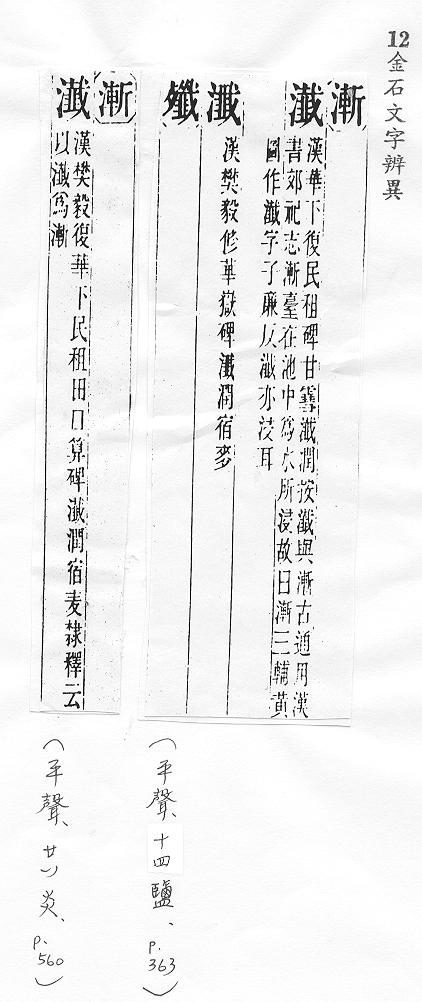 12金石文字辨異
漸 瀸
漢華下復民租碑甘䨩瀸潤按瀸與漸古通用漢
書郊祀志漸臺在池中爲水所浸故曰漸三輔黃
圖作瀸字子廉反瀸亦浸耳
瀸 殲
漢樊毅修華嶽碑瀸潤宿麥
(平聲、十四鹽、p.363)
漸 瀸
漢樊毅復華下民租田口算碑瀸潤宿麦隸釋云
以瀸爲漸
(平聲、廿八炎、p.560)